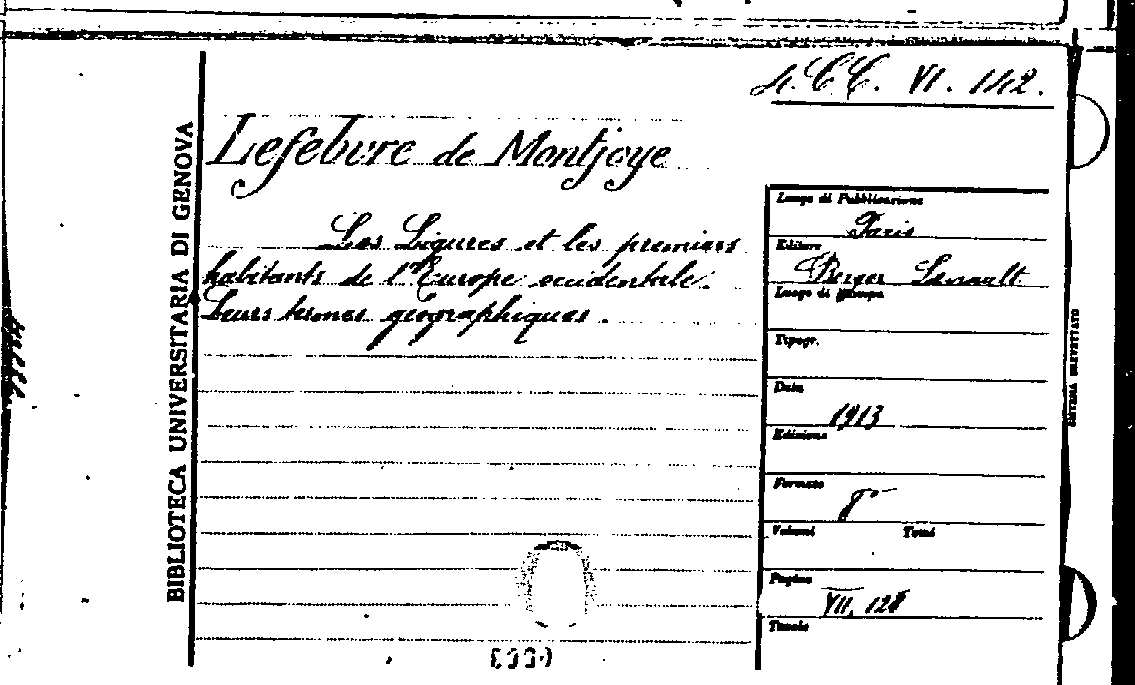 4. CC. VI. 142.
BIBLIOTECA UNIVERSITARIA DI GENOVA
Lefebvre de Montjoye
Les Ligures et les premiers
habitants de l'Europe occidentale.
Leurs termes géographiques.
Luogo di Pubblicazione
Paris
Editore
Berger Levrault
Luogo di Stampa
Tipogr.
Data
1913
Edizione
Formato
8°
Volumi Tomi
Pagine
VII, 128
Tavole